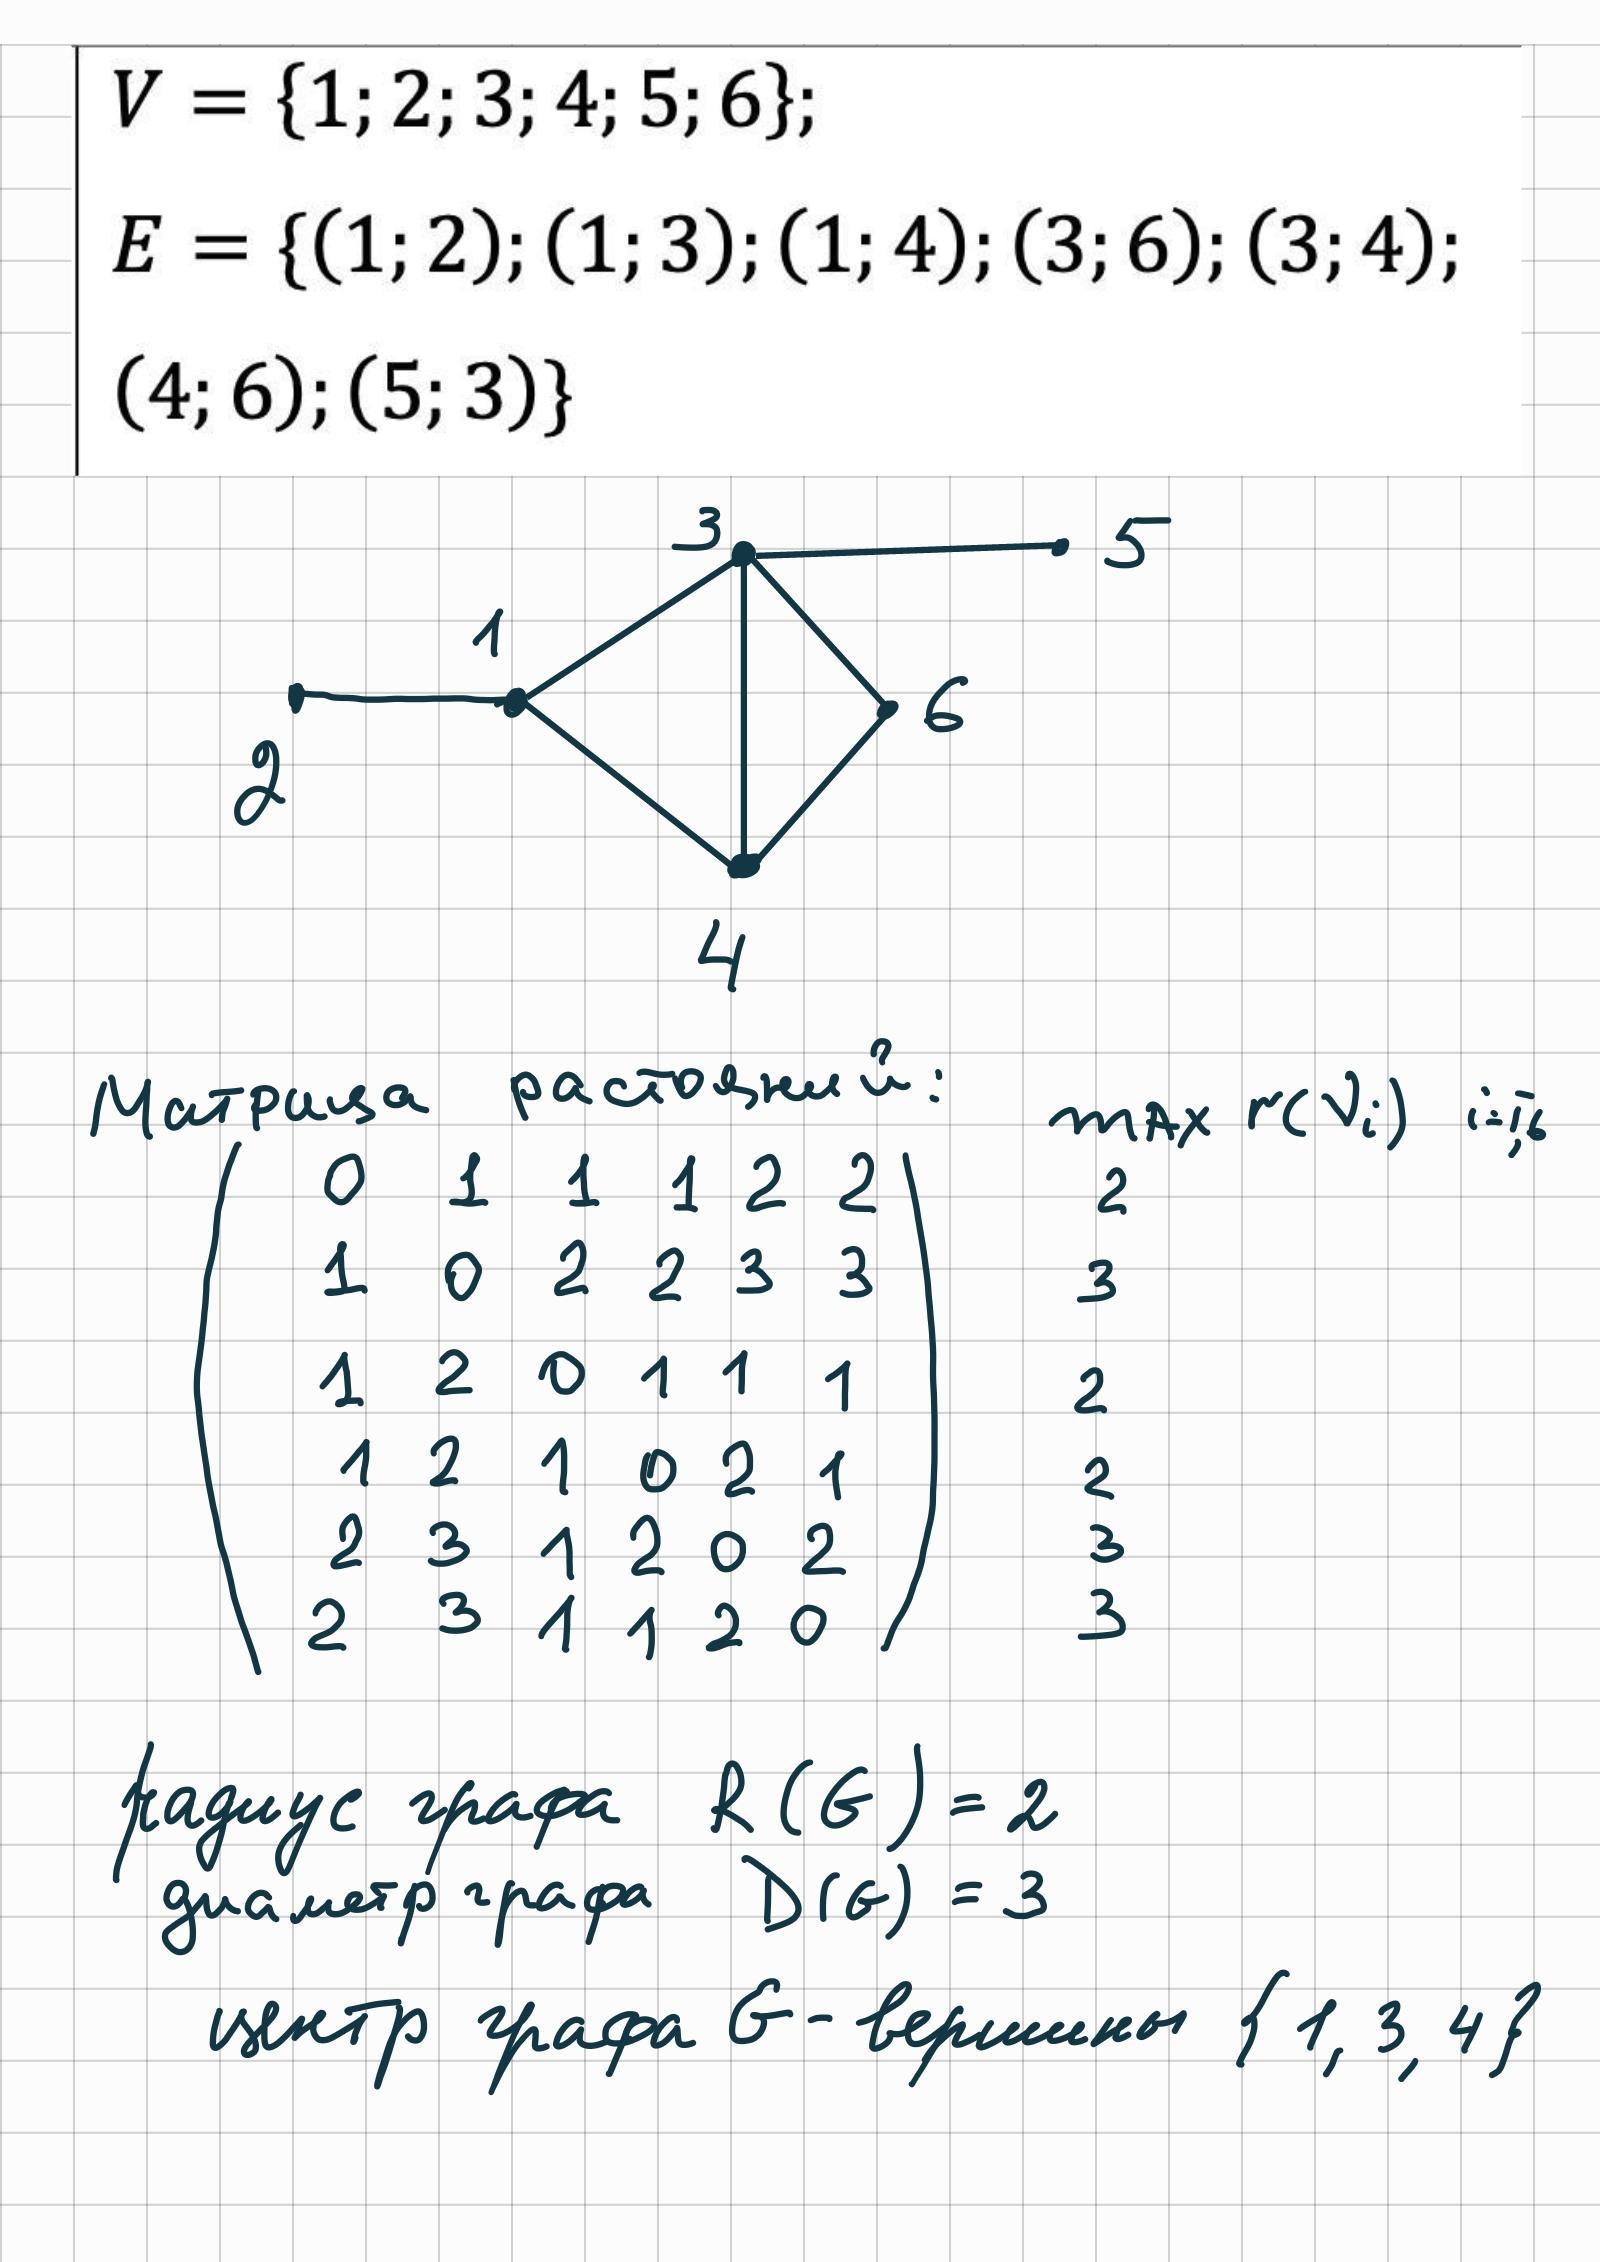 V = {1; 2; 3; 4; 5; 6};
E = {(1; 2); (1; 3); (1; 4); (3; 6); (3; 4);
(4; 6); (5; 3)}
3 5
1
6
2
4
Матрица растояний: max r(Vi) i=1,6
0 1 1 1 2 2 2
1 0 2 2 3 3 3
1 2 0 1 1 1 2
1 2 1 0 2 1 2
2 3 1 2 0 2 3
2 3 1 1 2 0 3
радиус графа R(G) = 2
диаметр графа D(G) = 3
центр графа G - вершины {1, 3, 4}